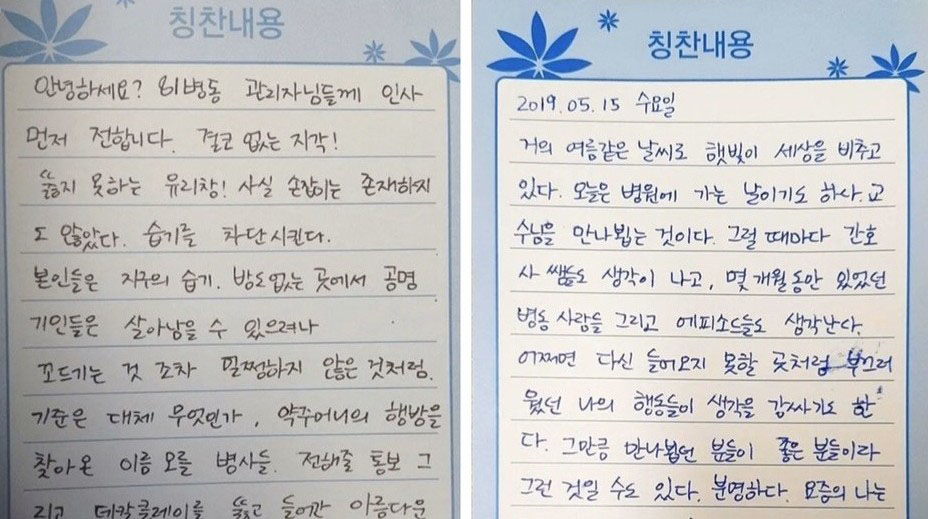 칭찬내용
안녕하세요? 81병동 관리자님들께 인사
먼저 전합니다. 결코 없는 지각!
뚫지 못하는 유리창! 사실 손잡이는 존재하지
도 않았다. 습기를 차단시킨다.
본인들은 지구의 습기. 밤도없는 곳에서 공명
기인들은 살아남을 수 있으려나
꼬드기는 것 조차 멀쩡하지 않은 것처럼.
기준은 대체 무엇인가, 약주머니의 행방을
찾아온 이름 모를 병사들. 전해줄 통보 그
리고 데칼클레이를 뚫고 들어간 아름다운
칭찬내용
2019.05.15 수요일
거의 여름같은 날씨로 햇빛이 세상을 비추고
있다. 오늘은 병원에 가는 날이기도 하사. 교
수님을 만나뵙는 것이다. 그럴 때마다 간호
사 쌤들도 생각이 나고, 몇 개월동안 있었던
병동 사람들 그리고 에피소드들도 생각난다.
어쩌면 다신 들어오지 못할 곳처럼 부끄러
웠던 나의 행동들이 생각을 감싸기도 한
다. 그만큼 만나뵙던 분들이 좋은 분들이라
그런 것일 수도 있다. 분명하다. 요즘의 나는